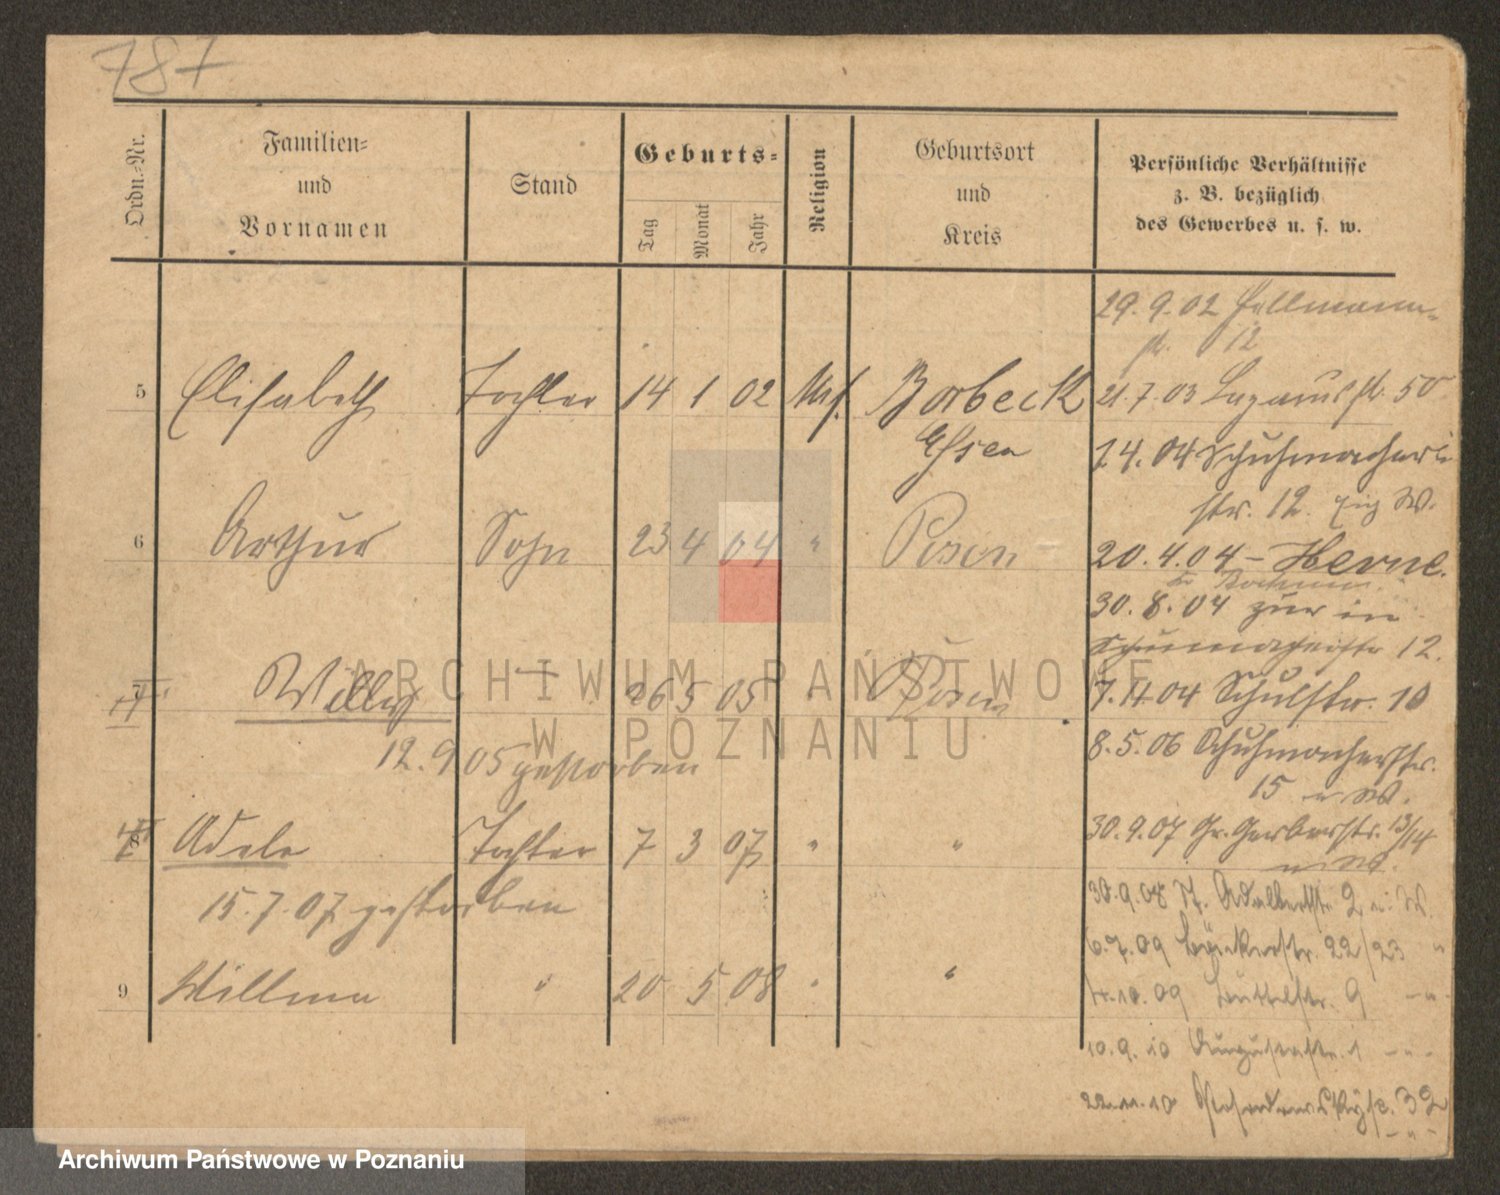 787
Ordn.-Nr.
Familien-
und
Vornamen
Stand
Geburts-
Tag
Monat
Jahr
Religion
Geburtsort
und
Kreis
Persönliche Verhältnisse
z. B. bezüglich
des Gewerbes u. s. w.
29. 9. 02
12
5 Elisabeth Tochter 14 1 02 Borbeck
Essen
21. 7. 03 Lazarusstr. 50
7. 4. 04 Schuhmacher
str. 12. W.
6 Arthur Sohn 23 4 04 " Posen
20. 4. 04 – Herne.
Bochum
30. 8. 04 zur in
Schumacherstr 12.
7 Willy 26 5 05 " Posen
12. 9. 05 gestorben
7. 11. 04 Schulstr. 10
8. 5. 06 Schuhmacherstr.
15 W.
8 Adele Tochter 7 3 07 " "
15. 7. 07 gestorben
30. 9. 07 Gr. Gerberstr. 13/14
W.
30. 9. 08 St. Adalbertstr. 2 W.
6. 7. 09 Bäckerstr. 22/23 "
9 Willma " 20 5 08 " "
4. 10. 09 Büttelstr. 9 – " –
10. 9. 10 Augustastr. 1 – " –
22. 11. 10 32
– " –
ARCHIWUM PAŃSTWOWE
W POZNANIU
Archiwum Państwowe w Poznaniu